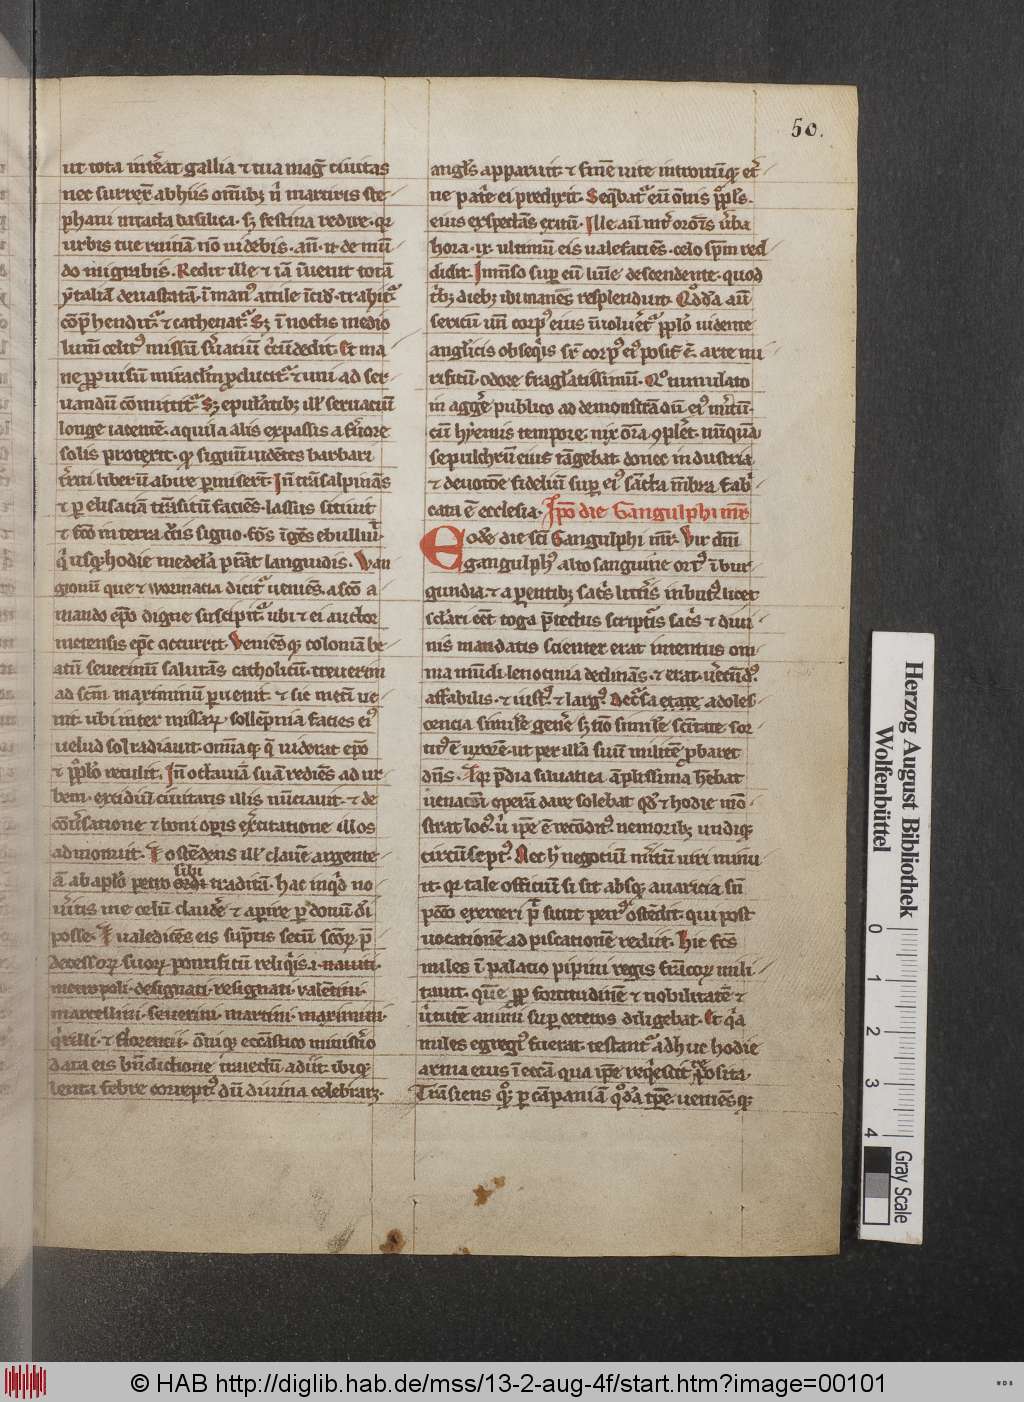 50.
ut tota int̄eat gallia ⁊ tua mag̅ ciuitas
nec surrex̄ abhiis om̅ibꝫ n̄ martiris ste-
phani intacta basilica. sꝫ festina redire. qr
urbis tue ruinā nō uidebis. au̅. n̄. de mū
do migrabis. Redit ille ⁊ iā uenit totā
ytaliā deuastatā. ī man᷒
cōp̄hendit᷑ ⁊ cathenat᷑ Sꝫ ī noctis medio
lum̄ celit᷒ missū Et ma
ne uisum ad ser-
uandū cōmittit᷑. Sꝫ epulātibꝫ ill̄ seruaciū
longe iacentē. aquila alis expassis a feruore
solis protexit. qd̄ signū uidētes barbari
liberū abire pmiserūt. In̄ trāsalpinās
⁊ p elisaciā trāsitū faciēs. lassus sitiuit
⁊ fc̄o in terra signo. fōs īgēs ebulliuit
usqꝫ hodie medelā p̄stāt languidis. Wan
gionū que ⁊ wormacia dicit᷑ ueniēs. a sc̄o a
mando ep̄o digne suscipit᷑. ubi ⁊ ei auctor
metensis ep̄c occurrit. Veniēsqꝫ coloniā be
atū seuerinū salutās catholicū. treuerim
ad scm̄ maximinū puenit. ⁊ sic metī ue
nit. ubi inter missaꝝ sollēpnia facies ei᷒
uelud sol radiauit. om̄iaqꝫ q̄ uiderat ep̄o
⁊ pp̄lo retulit. In octauiā suā rediēs ad ur
bem. excidiū ciuitatis illis nūciauit. ⁊ de
cōuersatione ⁊ boni opis exercitatione illos
admonuit. ostēdens ill̄ clauē argente
ā ab aplo̅ petro sibi traditū. hac inqd̄ no
ueritis me celū claudere ⁊ aperire p donū dī
posse. ualedicēs eis sūptis secū scōꝝ p̄
decessoꝝ suoꝝ pontificū reliqis. i. nauiti.
metropoli. designati. resignati. ualētini.
marcellini. seuerini. martini. maximini.
⁊ florencii. ōniqꝫ ecclāstico ministīo
data eis bn̄dictione traiectū adiit. ibiqꝫ
lenta febre corrept᷒ dū diuina celebraret.
angl̄s apparuit. ⁊ finē uite introitūqꝫ et̄
ne pat̄e ei predixit. Seqbat᷑ eū ōnis pp̄ls.
eius exspectās exitū. Ille au̅ int̄ orōis u̅ba
hora. ix. ultimū eis ualefaciēs. celo spm̄ red
didit. Imn̄so sup eū lumīe descendente. quod
tribꝫ diebꝫ ibi manēs resplenduit. Qd̄dā au̅
sericū corp᷒ eius pp̄lo uidente
anglicis obseqis corp᷒ ei᷒ posit̄ ē. arte mi
rificū. odore fraglātissimū. Quo tumulato
in aggere publico ad demonstrādū ei᷒ meritū.
cū hyemis tempore. nix ōīa nūquā
sepulchrū eius tāgebat donec industria
⁊ deuotōe fideliū sup ei᷒ sācta mēbra fabri
cata ē ecclesia. Ipō die Gangulphi mr̄
Eode die sci̅ Gangulphi mr̄. Vir dn̄i
gangulph᷒ alto sanguine ort᷒ ī bur
gundia. ⁊ a parentibꝫ sacris litteris inbut᷒. licet
sclari eēt toga p̄tectus scriptis sacris ⁊ diui
nis mandatis scienter erat intentus om
nia mūdi lenocinia declinās. ⁊ erat uerecūd᷒.
affabilis. ⁊ iust᷒. ⁊ larg᷒. Decursa etate adoles
cencia similē genere sꝫ nō similē scītate sor
tit᷒ ē uxorē. ut per illā suū militē p̄baret
dn̄s. Iqꝫ p̄dia siluatica āplissima hēbat
uenacōi operā dare solebat qd̄ ⁊ hodie mō
strat loc᷒. ubi ip̄e ē recōdit᷒. nemoribꝫ undiqꝫ
circūsept᷒. Nec h̄ negotiū meritū uiri minu
it. qr tale officiū si sit absqꝫ auaricia sū
pctō exerceri pt̄ sicut petr᷒ ostēdit. qui post
uocationē ad piscationē rediit. Hic fcs̄
miles ī palacio pipini regis frācoꝝ mili
tauit. quē fortitudinē ⁊ nobilitatē ⁊
uirtutē animi sup ceteros diligebat. Et quia
miles egregi᷒ fuerat. testant᷑ adhuc hodie
arma eius ī eccīa qua ip̄e reqescit reposita.
Trāsiens qꝫ p cāpaniā qd̄ā tp̄e. ueniēsqꝫ
Herzog August Bibliothek
Wolfenbüttel
0 1 2 3 4
Gray Scale
© HAB http://diglib.hab.de/mss/13-2-aug-4f/start.htm?image=00101
WDB